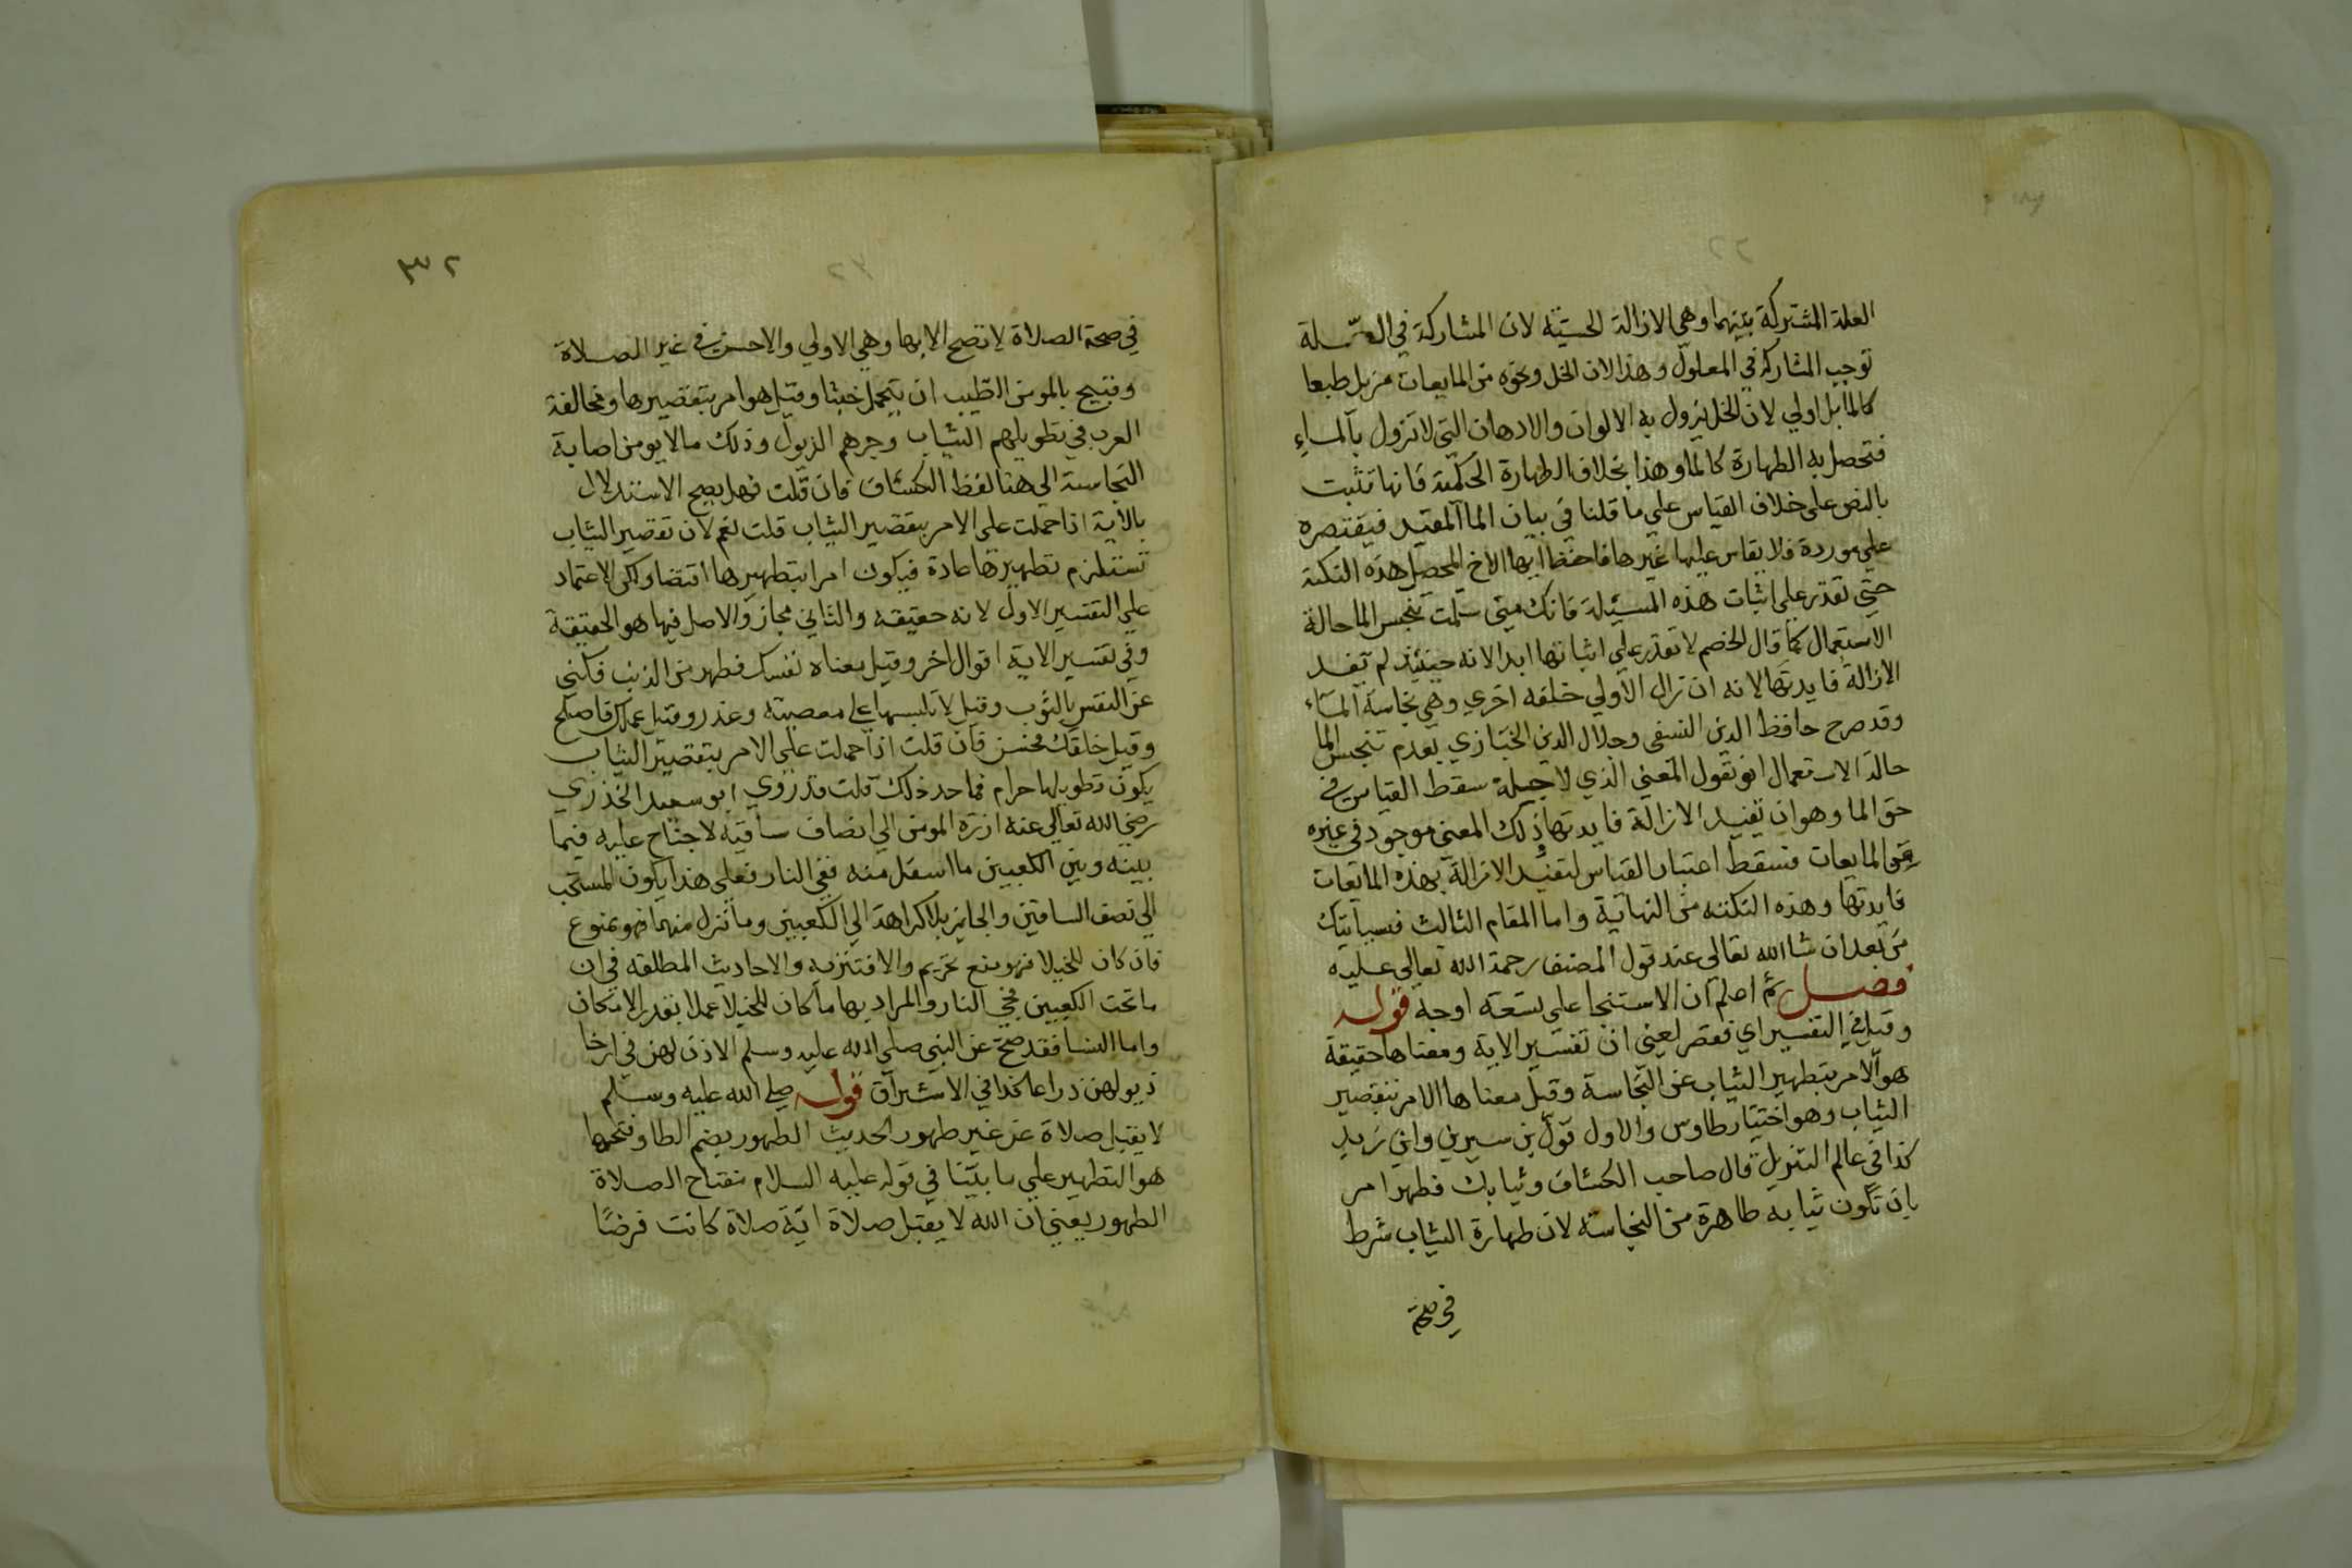 العلة المشتركة بينهما وهي الازالة الحسية لان المشاركة في العلة
توجب المشاركة في المعلول وهذا لان الخل ونحوه من المايعات مزيل طبعا
كالما بل اولي لان الخل يزول به الالوان والادهان التي لا تزول بالماء
فتحصل به الطهارة كالما وهذا بخلاف الطهارة الحكمية فانها تثبت
بالنص على خلاف القياس علي ما قلنا في بيان الما المقيد فيقتصر
على مورده فلا يقاس عليها غيرها فاحفظ ايها الاخ المحصل هذه النكتة
حتي تقدر علي اثبات هذه المسئلة فانك متي سلمت تنجس الما حالة
الاستعمال كما قال الخصم لا تقدر علي اثباتها ابدا لانه حينئذ لم تفد
الازالة فايدتها لانه ان زال الاولي خلفه اخري وهي نجاسة الماء
وقد صرح حافظ الدين النسفي وجلال الدين الخبازي بعدم تنجس الما
حالة الاستعمال او نقول المعني الذي لاجله سقط القياس في
حق الما وهو ان تفيد الازالة فايدتها ذلك المعني موجود في غيره
من المايعات فسقط اعتبار القياس لتفيد الازالة بهذه المايعات
فايدتها وهذه النكتة من النهاية واما المقام الثالث فسياتيك
من بعد ان شا الله تعالى عند قول المصنف رحمة الله تعالي عليه
فصل ثم اعلم ان الاستنجا علي تسعة اوجه قوله
وقيل في التفسير اي فقصر يعني ان تفسير الاية ومعناها حقيقة
هو الامر بتطهير الثياب عن النجاسة وقيل معناها الامر بتقصير
الثياب وهو اختيار طاوس والاول قول بن سيرين وابن زيد
كذا في عالم التنزيل قال صاحب الكشاف وثيابك فطهر امر
بان تكون ثيابه طاهرة من النجاسة لان طهارة الثياب شرط
في صحة
٣٢
في صحة الصلاة لا تصح الا بها وهي الاولي والاحسن في غير الصلاة
وقبيح بالمومن الطيب ان يحمل خبثا وقيل هو امر بتقصيرها ومخالفة
العرب في تطويلهم الثياب وجرهم الذيول وذلك مالا يومن اصابة
النجاسة الى هنا لفظ الكشاف فان قلت فهل يصح الاستدلال
بالاية اذا حملت على الامر بتقصير الثياب قلت نعم لان تقصير الثياب
تستلزم تطهيرها عادة فيكون امرا بتطهيرها اقتضا ولكن الاعتماد
علي التفسير الاول لانه حقيقة والثاني مجاز والاصل فيها هو الحقيقة
وفي تفسير الاية اقوال اخر وقيل معناه نفسك فطهر من الذنب فكني
عن النفس بالثوب وقيل لا تلبسها على معصية وغدر وقيل عملك فاصلح
وقيل خلقك فحسن فان قلت اذا حملت علي الامر بتقصير الثياب
يكون تطويلها حرام فما حد ذلك قلت قد روي ابو سعيد الخذري
رضي الله تعالي عنه ازرة المومن الي انصاف ساقيه لا جناح عليه فيما
بينه وبين الكعبين ما اسفل منه ففي النار فعلى هذا يكون المستحب
الي نصف الساقين والجايز بلا كراهة الي الكعبين وما نزل منهما فهو ممنوع
فان كان للخيلا فهو منع تحريم والا فتنزيه والاحاديث المطلقه في ان
ما تحت الكعبين في النار والمراد بها ما كان للخيلا عملا بقدر الامكان
واما النسا فقد صح عن النبي صلى الله عليه وسلم الاذن لهن في ارخا
ذيولهن ذراعا كذا في الاشراق قوله صلى الله عليه وسلم
لا يقبل صلاة عن غير طهور الحديث الطهور بضم الطا وفتحها
هو التطهير علي ما بينا في قوله عليه السلام مفتاح الصلاة
الطهور يعني ان الله لا يقبل صلاة اية صلاة كانت فرضًا